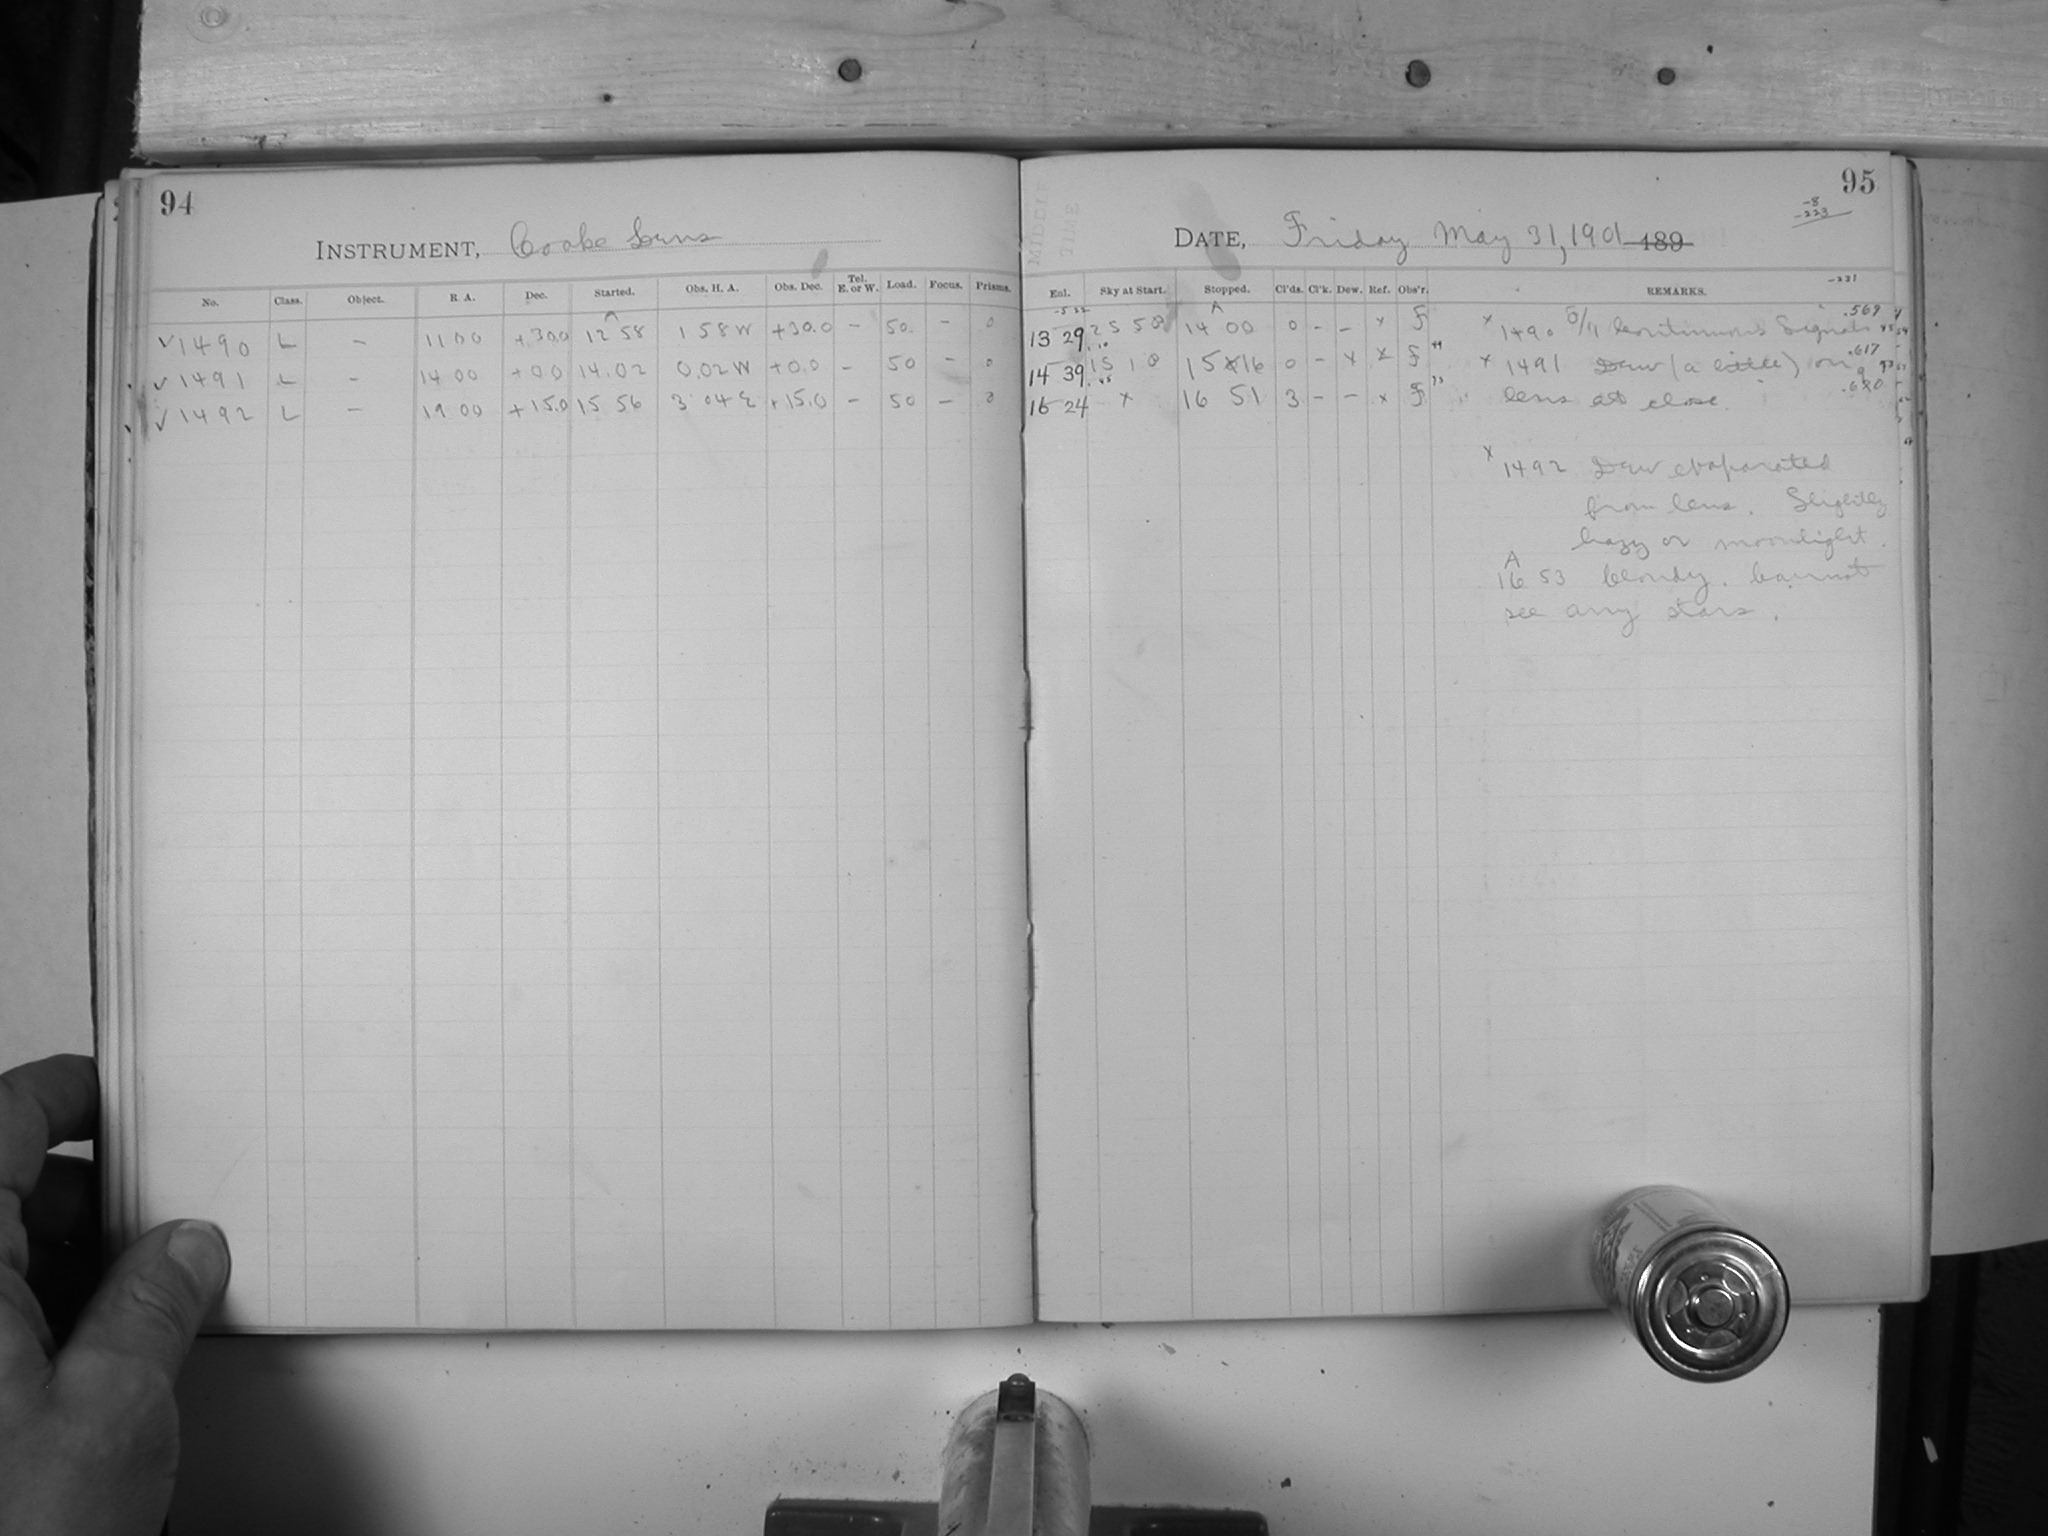 94
INSTRUMENT, Cooke Lens
No. Class. Object. R. A. Dec. Started. Obs. H. A. Obs. Dec. Tel. E. or W. Load. Focus. Prisms.
✓ 1490 L - 11 00 +30.0 12 58 1 58 W +30.0 - 50. - 0
✓ 1491 L - 14 00 +0 0 14.02 0.02 W +0.0 - 50 - 0
✓ 1492 L - 19 00 +15.0 15 56 3 04 E +15.0 - 50 - 0
95
-8
-223
DATE, Friday May 31, 1901 189
-231
Eol. Sky at Start. Stopped. Cl'ds. Cl'k. Dew. Ref. Obs'r. REMARKS.
13 29 2 5 5 8 14 00 0 - - x x 1490 Continuous Signals .569
14 39 15 1 0 15 16 0 - x x x 1491 Dew (a little) on .617
16 24 x 16 51 3 - - x lens at close.
x 1492 Dew evaporated
from lens. Slightly
hazy or moonlight.
A
16 53 Cloudy. Cannot
see any stars.